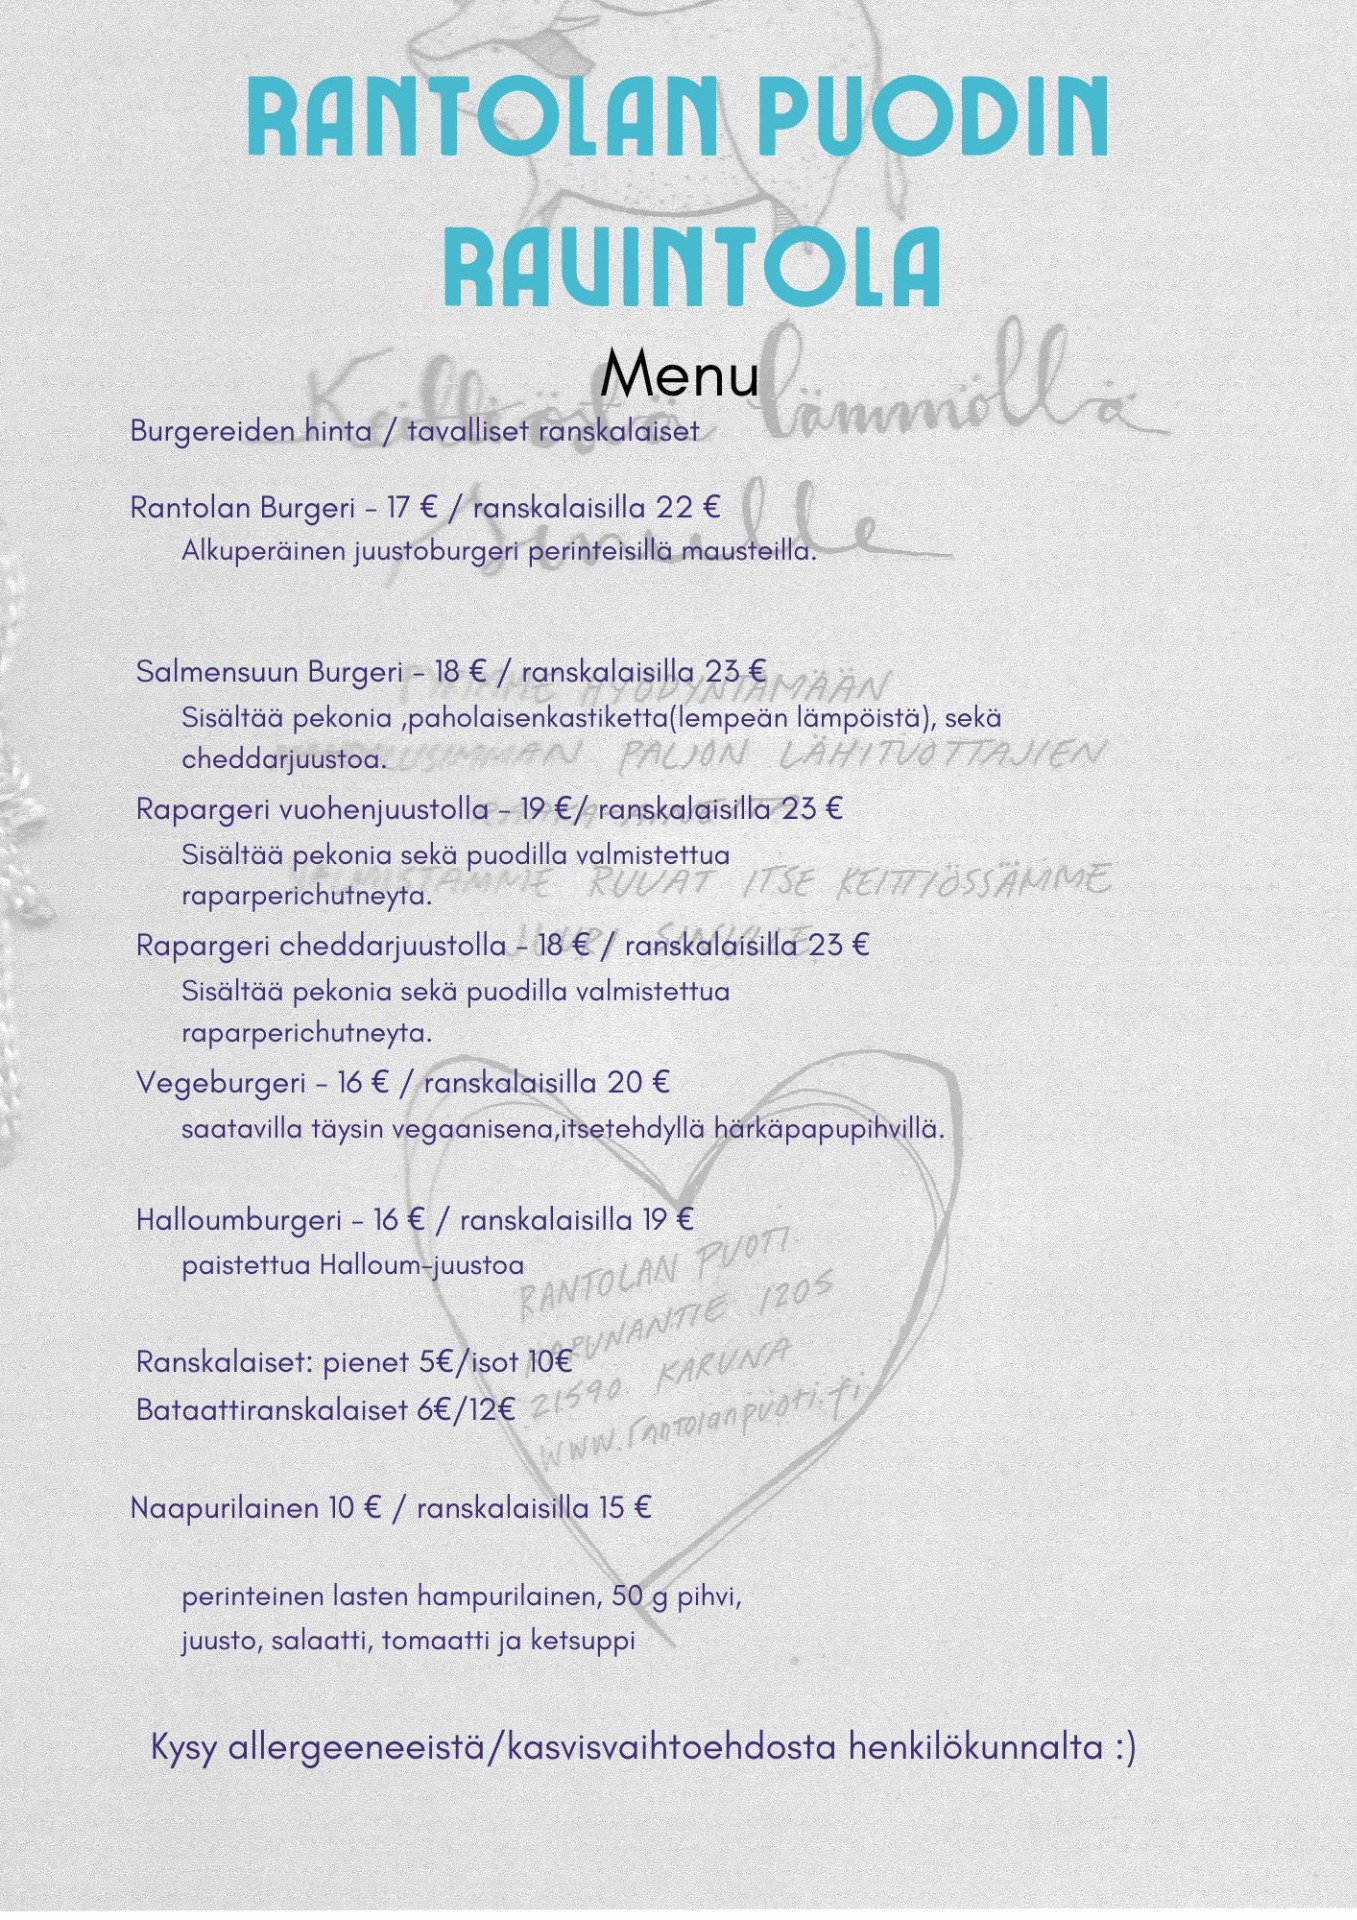 RANTOLAN PUODIN
RAVINTOLA
Menu
Keittiöstä lämmöllä
Burgereiden hinta / tavalliset ranskalaiset
Rantolan Burgeri - 17 € / ranskalaisilla 22 €
Sinulle
Alkuperäinen juustoburgeri perinteisillä mausteilla.
Salmensuun Burgeri - 18 € / ranskalaisilla 23 €
HYÖDYNTÄMÄÄN
Sisältää pekonia ,paholaisenkastiketta(lempeän lämpöistä), sekä
cheddarjuustoa.
PALJON LÄHITUOTTAJIEN
Rapargeri vuohenjuustolla - 19 €/ ranskalaisilla 23 €
Sisältää pekonia sekä puodilla valmistettua
VALMISTAMME RUUAT ITSE KEITTIÖSSÄMME
raparperichutneyta.
JUURI SINULLE
Rapargeri cheddarjuustolla - 18 € / ranskalaisilla 23 €
Sisältää pekonia sekä puodilla valmistettua
raparperichutneyta.
Vegeburgeri - 16 € / ranskalaisilla 20 €
saatavilla täysin vegaanisena,itsetehdyllä härkäpapupihvillä.
Halloumburgeri - 16 € / ranskalaisilla 19 €
paistettua Halloum-juustoa
RANTOLAN PUOTI
KARUNANTIE 1205
Ranskalaiset: pienet 5€/isot 10€
21590 KARUNA
Bataattiranskalaiset 6€/12€
www.rantolanpuoti.fi
Naapurilainen 10 € / ranskalaisilla 15 €
perinteinen lasten hampurilainen, 50 g pihvi,
juusto, salaatti, tomaatti ja ketsuppi
Kysy allergeeneeistä/kasvisvaihtoehdosta henkilökunnalta :)